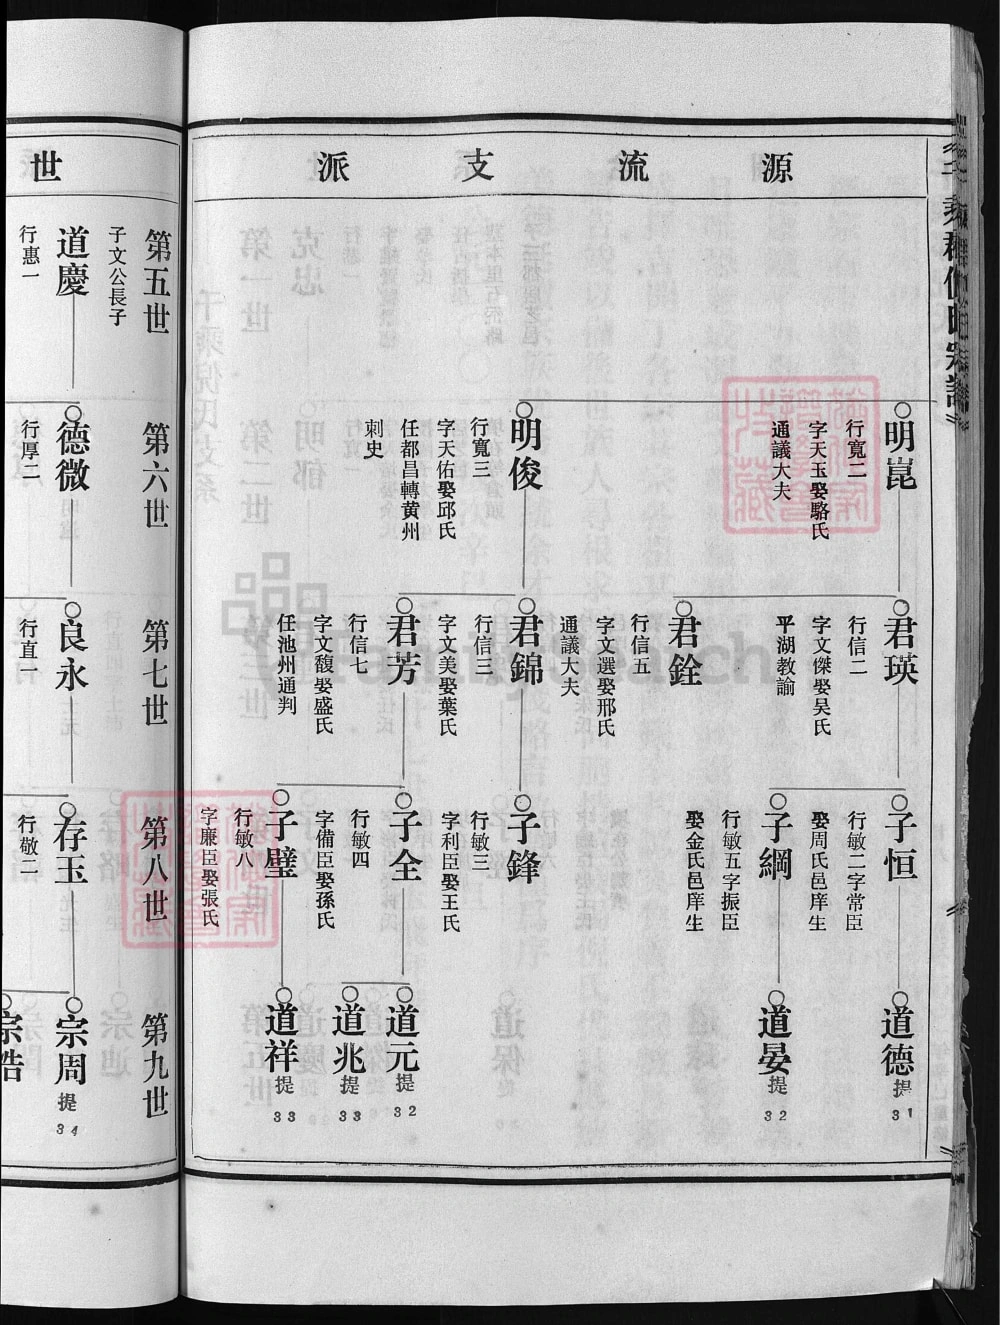 源流支派
明崑
行寬二
字天玉娶駱氏
通議大夫
明俊
行寬三
字天佑娶邱氏
任都昌轉黄州
刺史
君瑛
行信二
字文傑娶吴氏
平湖教諭
君銓
行信五
字文選娶邢氏
通議大夫
君錦
行信三
字文美娶葉氏
君芳
行信七
字文馥娶盛氏
任池州通判
子恒
行敏二字常臣
娶周氏邑庠生
子綱
行敏五字振臣
娶金氏邑庠生
子鋒
行敏三
字利臣娶王氏
子全
行敏四
字備臣娶孫氏
子璧
行敏八
字廉臣娶張氏
道德
提
31
道晏
提
32
道元
提
32
道兆
提
33
道祥
提
33
世
第五世
子文公長子
道慶
行惠一
第六世
德微
行厚二
第七世
良永
行直一
第八世
存玉
行敬二
第九世
宗周
提
34
宗浩
FamilySearch